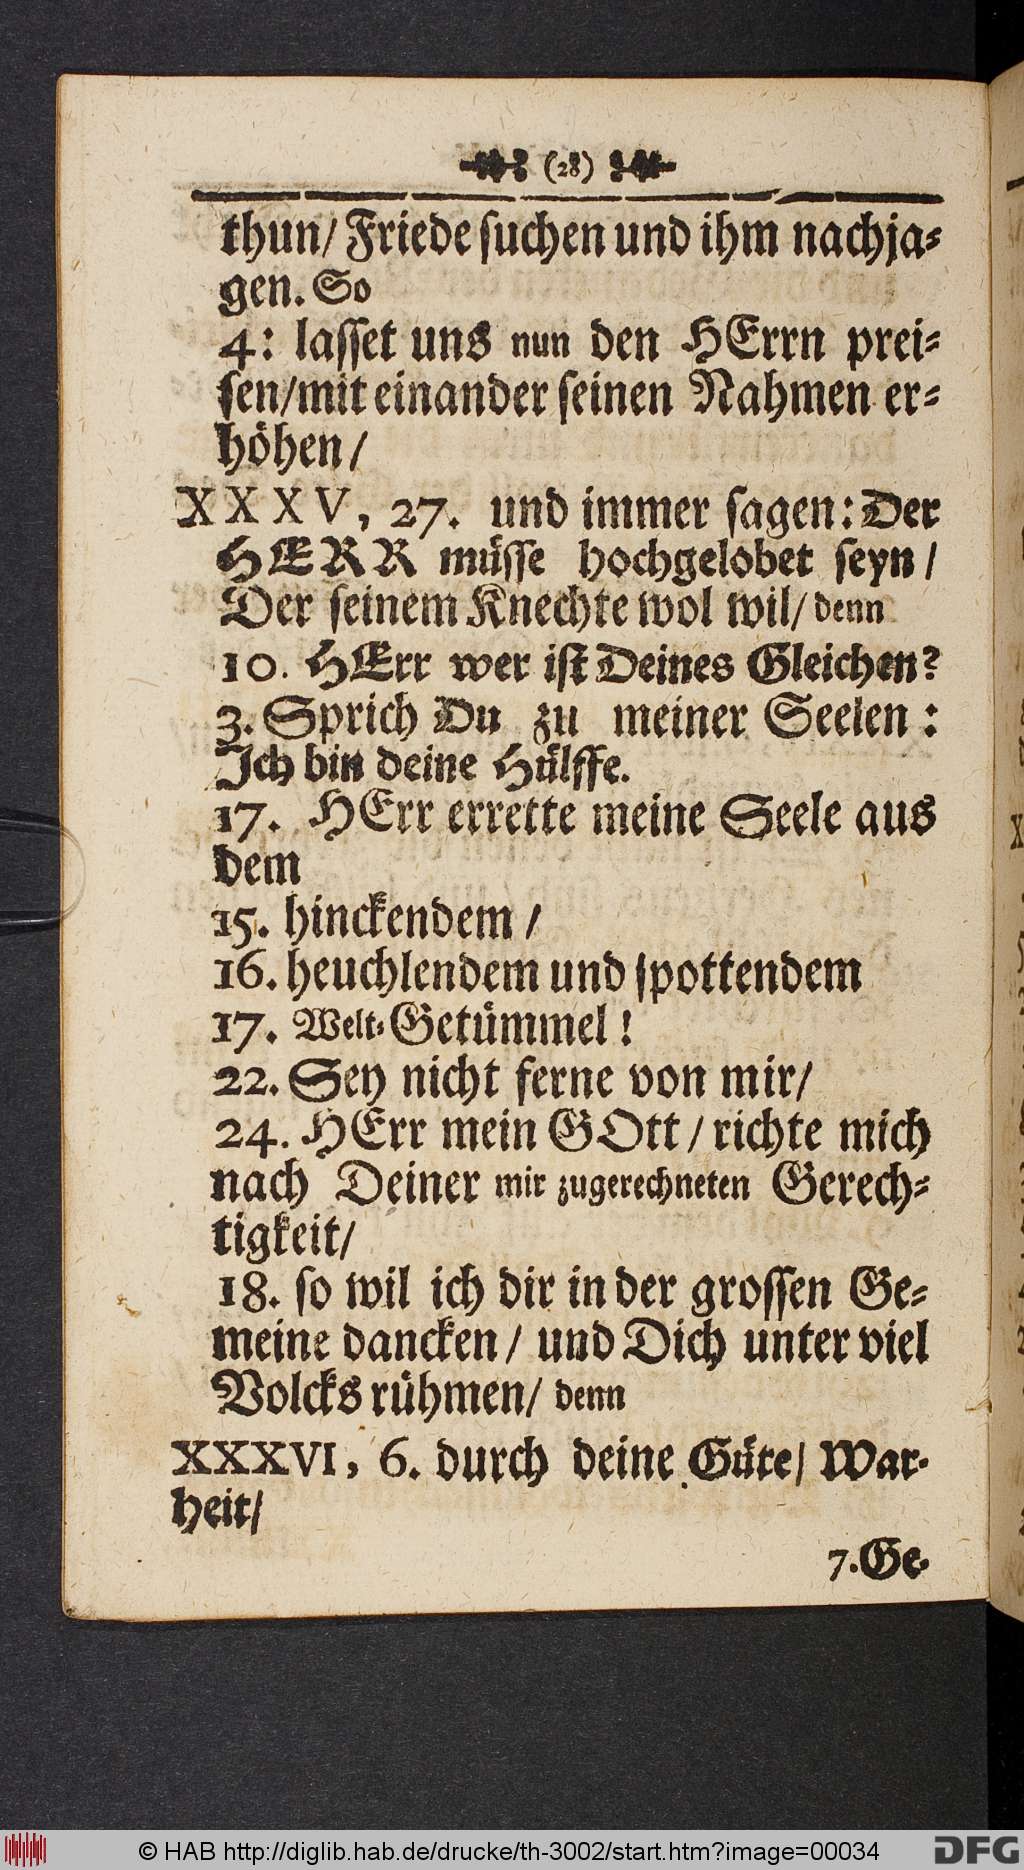 (28)
thun/ Friede suchen und ihm nachja⸗
gen. So
4: lasset uns nun den HErrn prei⸗
sen/mit einander seinen Nahmen er⸗
höhen/
XXXV, 27. und immer sagen: Der
HERR müsse hochgelobet seyn/
Der seinem Knechte wol wil/ denn
10. HErr wer ist Deines Gleichen?
3. Sprich Du zu meiner Seelen:
Ich bin deine Hülffe.
17. HErr errette meine Seele aus
dem
15. hinckendem/
16. heuchlendem und spottendem
17. Welt⸗Getümmel!
22. Sey nicht ferne von mir/
24. HErr mein GOtt/ richte mich
nach Deiner mir zugerechneten Gerech⸗
tigkeit/
18. so wil ich dir in der grossen Ge⸗
meine dancken/ und Dich unter viel
Volcks rühmen/ denn
XXXVI, 6. durch deine Güte/ War⸗
heit/
7. Ge⸗
© HAB http://diglib.hab.de/drucke/th-3002/start.htm?image=00034
DFG